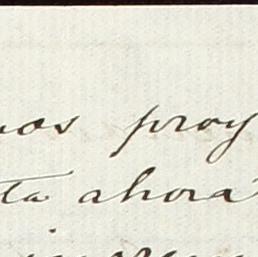 nos proy
ta ahora